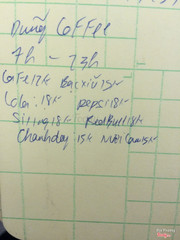 Dũng Coffee
7h - 23h
Cafe 12k Bạc xỉu 15k
Cola: 18k pepsi 18k
Siting 18k RedBull 18k
Chanh dây 15k Nước Cam 15k